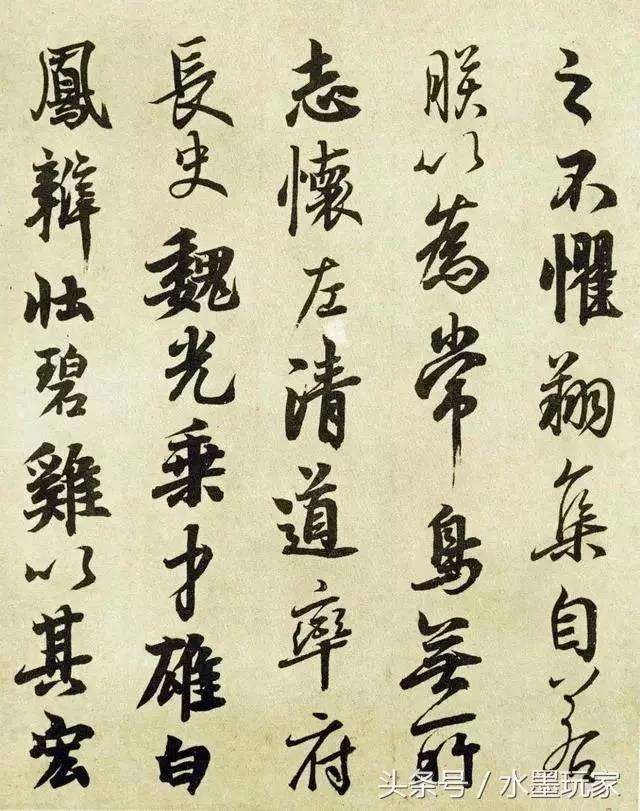 之不懼翔集自若
朕以為常鳥無所
志懷左清道率府
長史魏光乗才雄白
鳳辯壯碧雞以其宏
头条号／水墨玩家